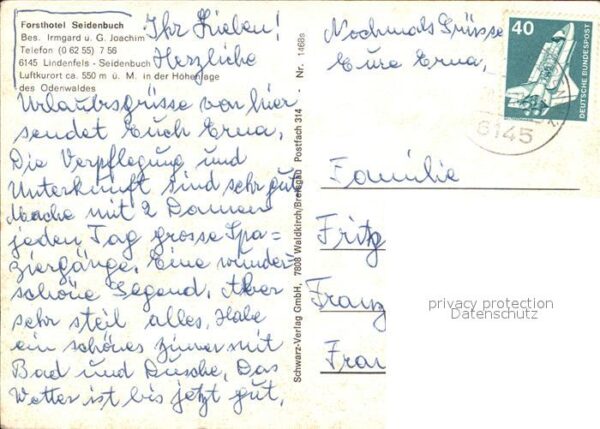 Forsthotel Seidenbuch
Bes. Irmgard u. G. Joachim
Telefon (0 62 55) 7 56
6145 Lindenfels - Seidenbuch
Luftkurort ca. 550 m ü. M. in der Höhenlage
des Odenwaldes
Ihr Lieben!
Herzliche
Urlaubsgrüsse von hier
sendet Euch Erna.
Die Verpflegung und
Unterkunft sind sehr gut
Mache mit 2 Damen
jeden Tag grosse Spa=
ziergänge. Eine wunder=
schöne Gegend. Aber
sehr steil alles. Habe
ein schönes Zimmer mit
Bad und Dusche. Das
Wetter ist bis jetzt gut.
Schwarz-Verlag GmbH, 7808 Waldkirch/Breisgau Postfach 314 - Nr. 1468s
Nochmals Grüsse
Eure Erna.
40
DEUTSCHE BUNDESPOST
6145
Familie
Fritz
Franz
Fran
privacy protection
Datenschutz